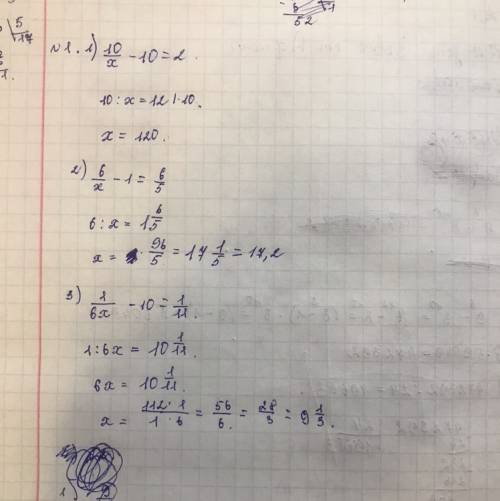 5
17
1.
6
52
1
№1. 1) 10/x - 10 = 2.
10 : x = 12 | · 10.
x = 120.
2) 6/x - 1 = 6/5
6 : x = 1 6/5
x = · 96/5 = 17 1/5 = 17,2
3) 1/6x - 10 = 1/11.
1 : 6x = 10 1/11.
6x = 10 1/11.
x = 112 · 1/1 · 6 = 56/6. = 28/3 = 9 1/3.